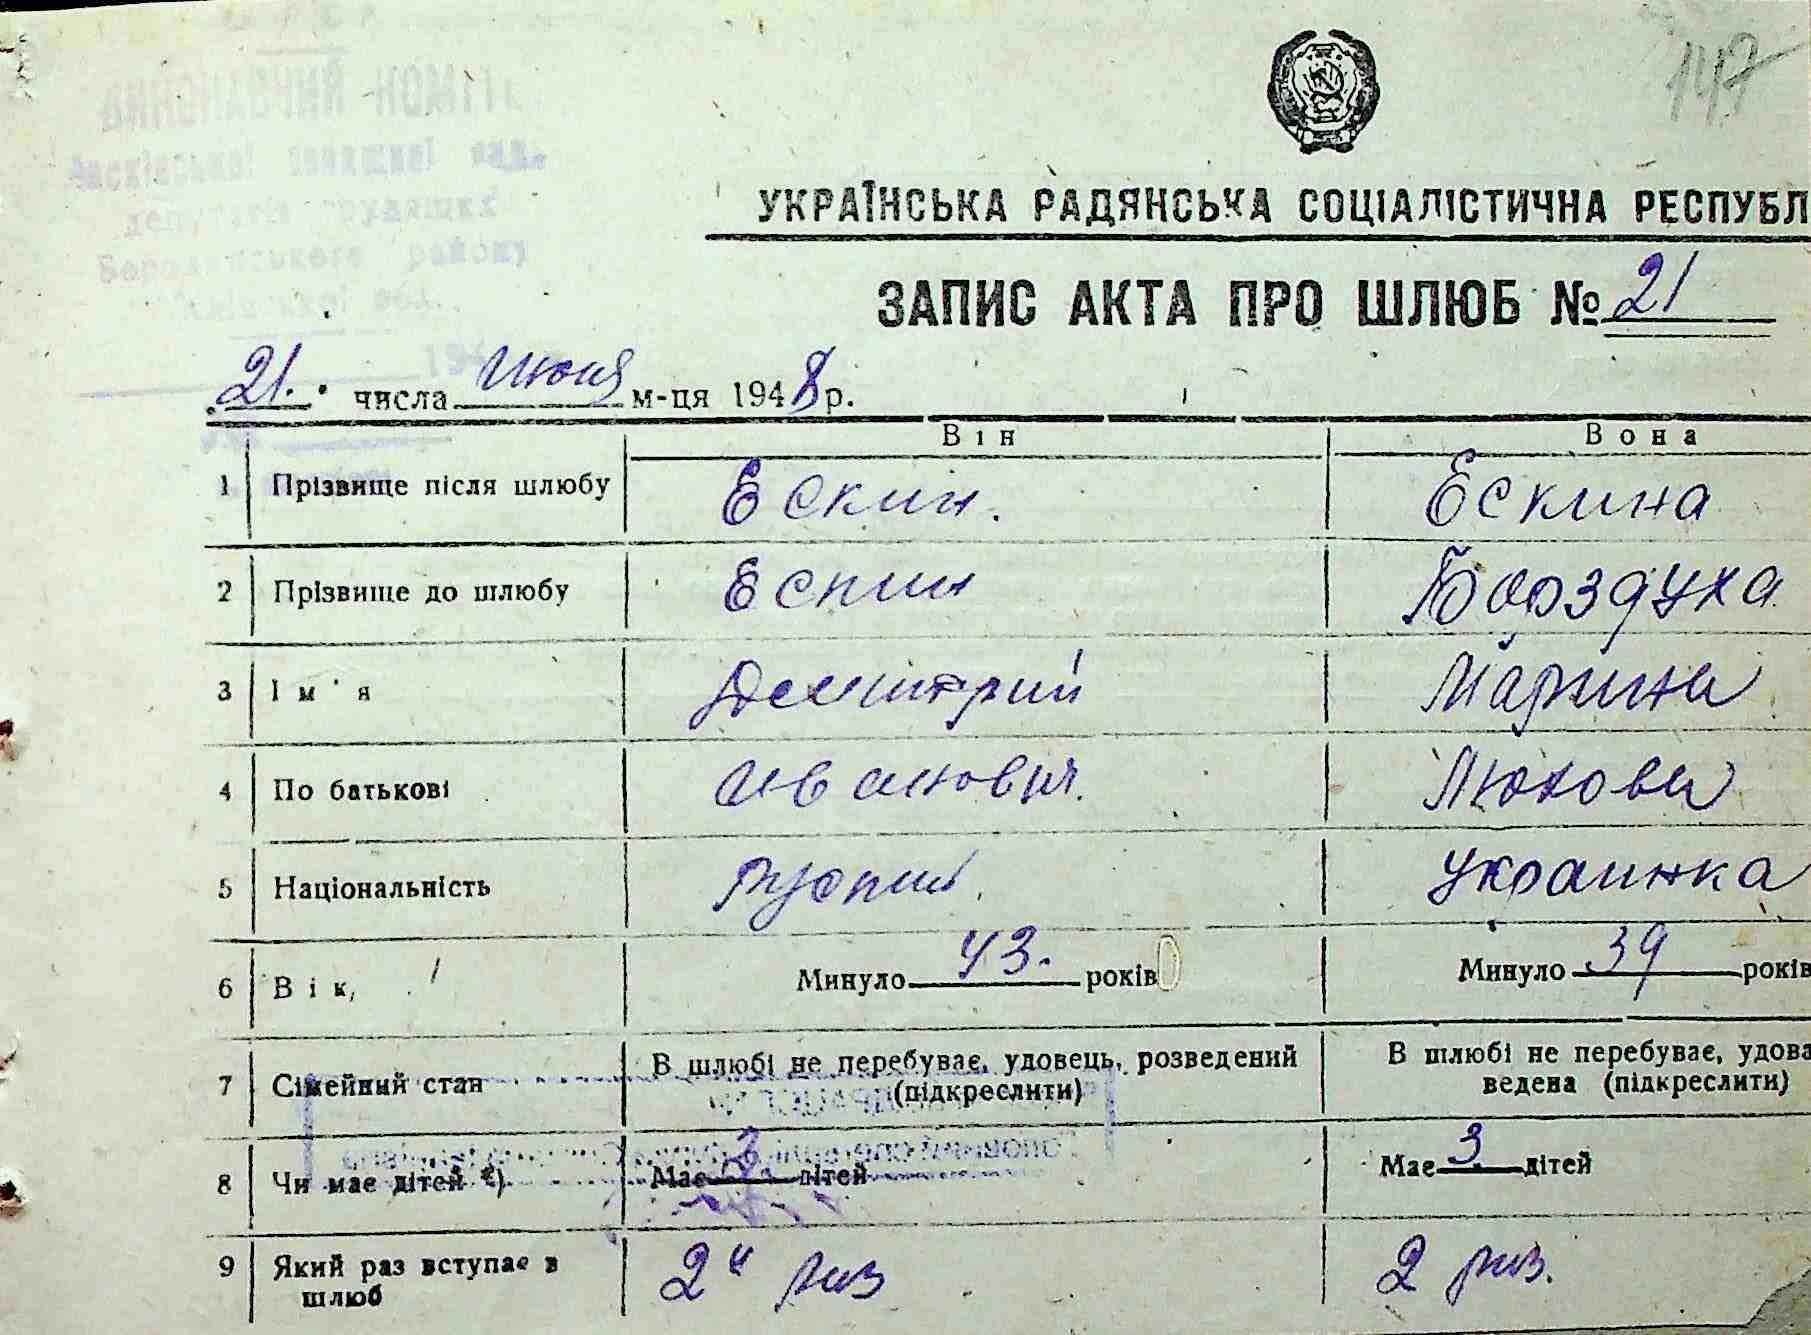 147
УКРАЇНСЬКА РАДЯНСЬКА СОЦІАЛІСТИЧНА РЕСПУБЛ
ЗАПИС АКТА ПРО ШЛЮБ № 21
21. числа Июня м-ця 1948 р.
Він Вона
1 Прізвище після шлюбу Ескин. Ескина
2 Прізвище до шлюбу Ескин Борздуха
3 Ім'я Демитрий Марина
4 По батькові Иванович.
5 Національність Руский. Украинка
6 Вік, Минуло 43. років Минуло 39 років
7 Сімейний стан В шлюбі не перебуває, удовець, розведений (підкреслити) В шлюбі не перебуває, удова ведена (підкреслити)
8 Чи має дітей *) Має 3. дітей Має 3. дітей
9 Який раз вступає в шлюб 2й раз 2 раз.